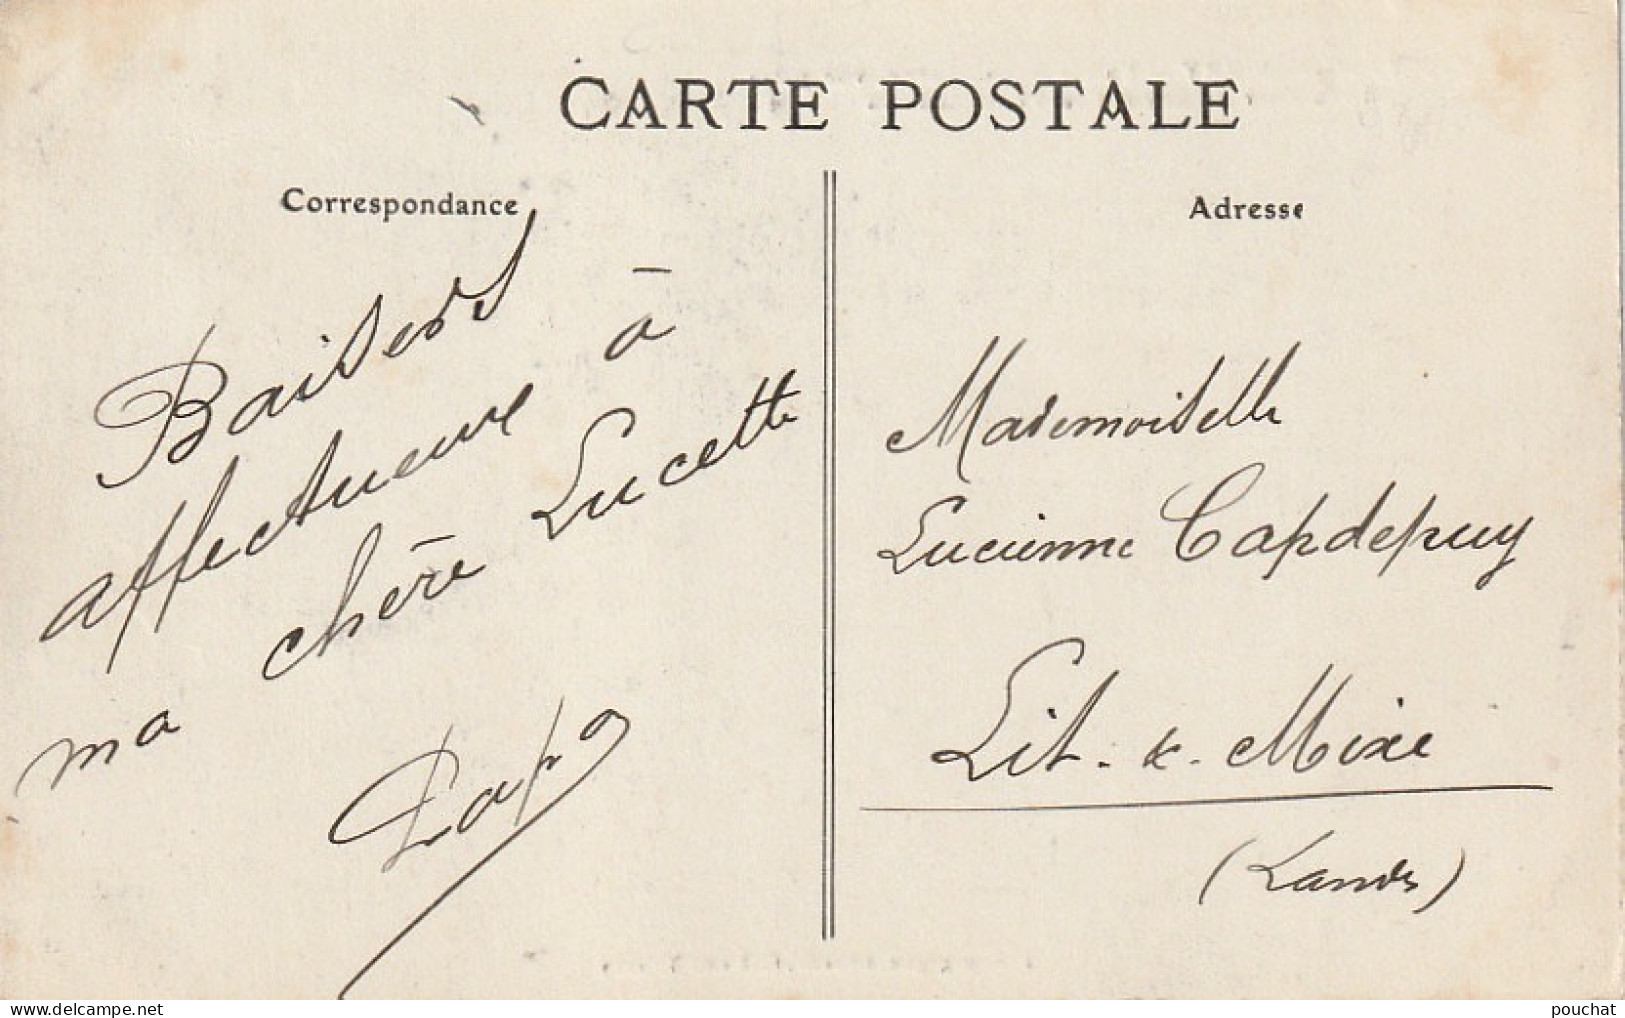 CARTE POSTALE
Correspondance
Baisers
affectueux à
ma chère Lucette
Papa
Adresse
Mademoiselle
Lucienne Capdepuy
Lit-&-Mixe
(Landes)
pouchat